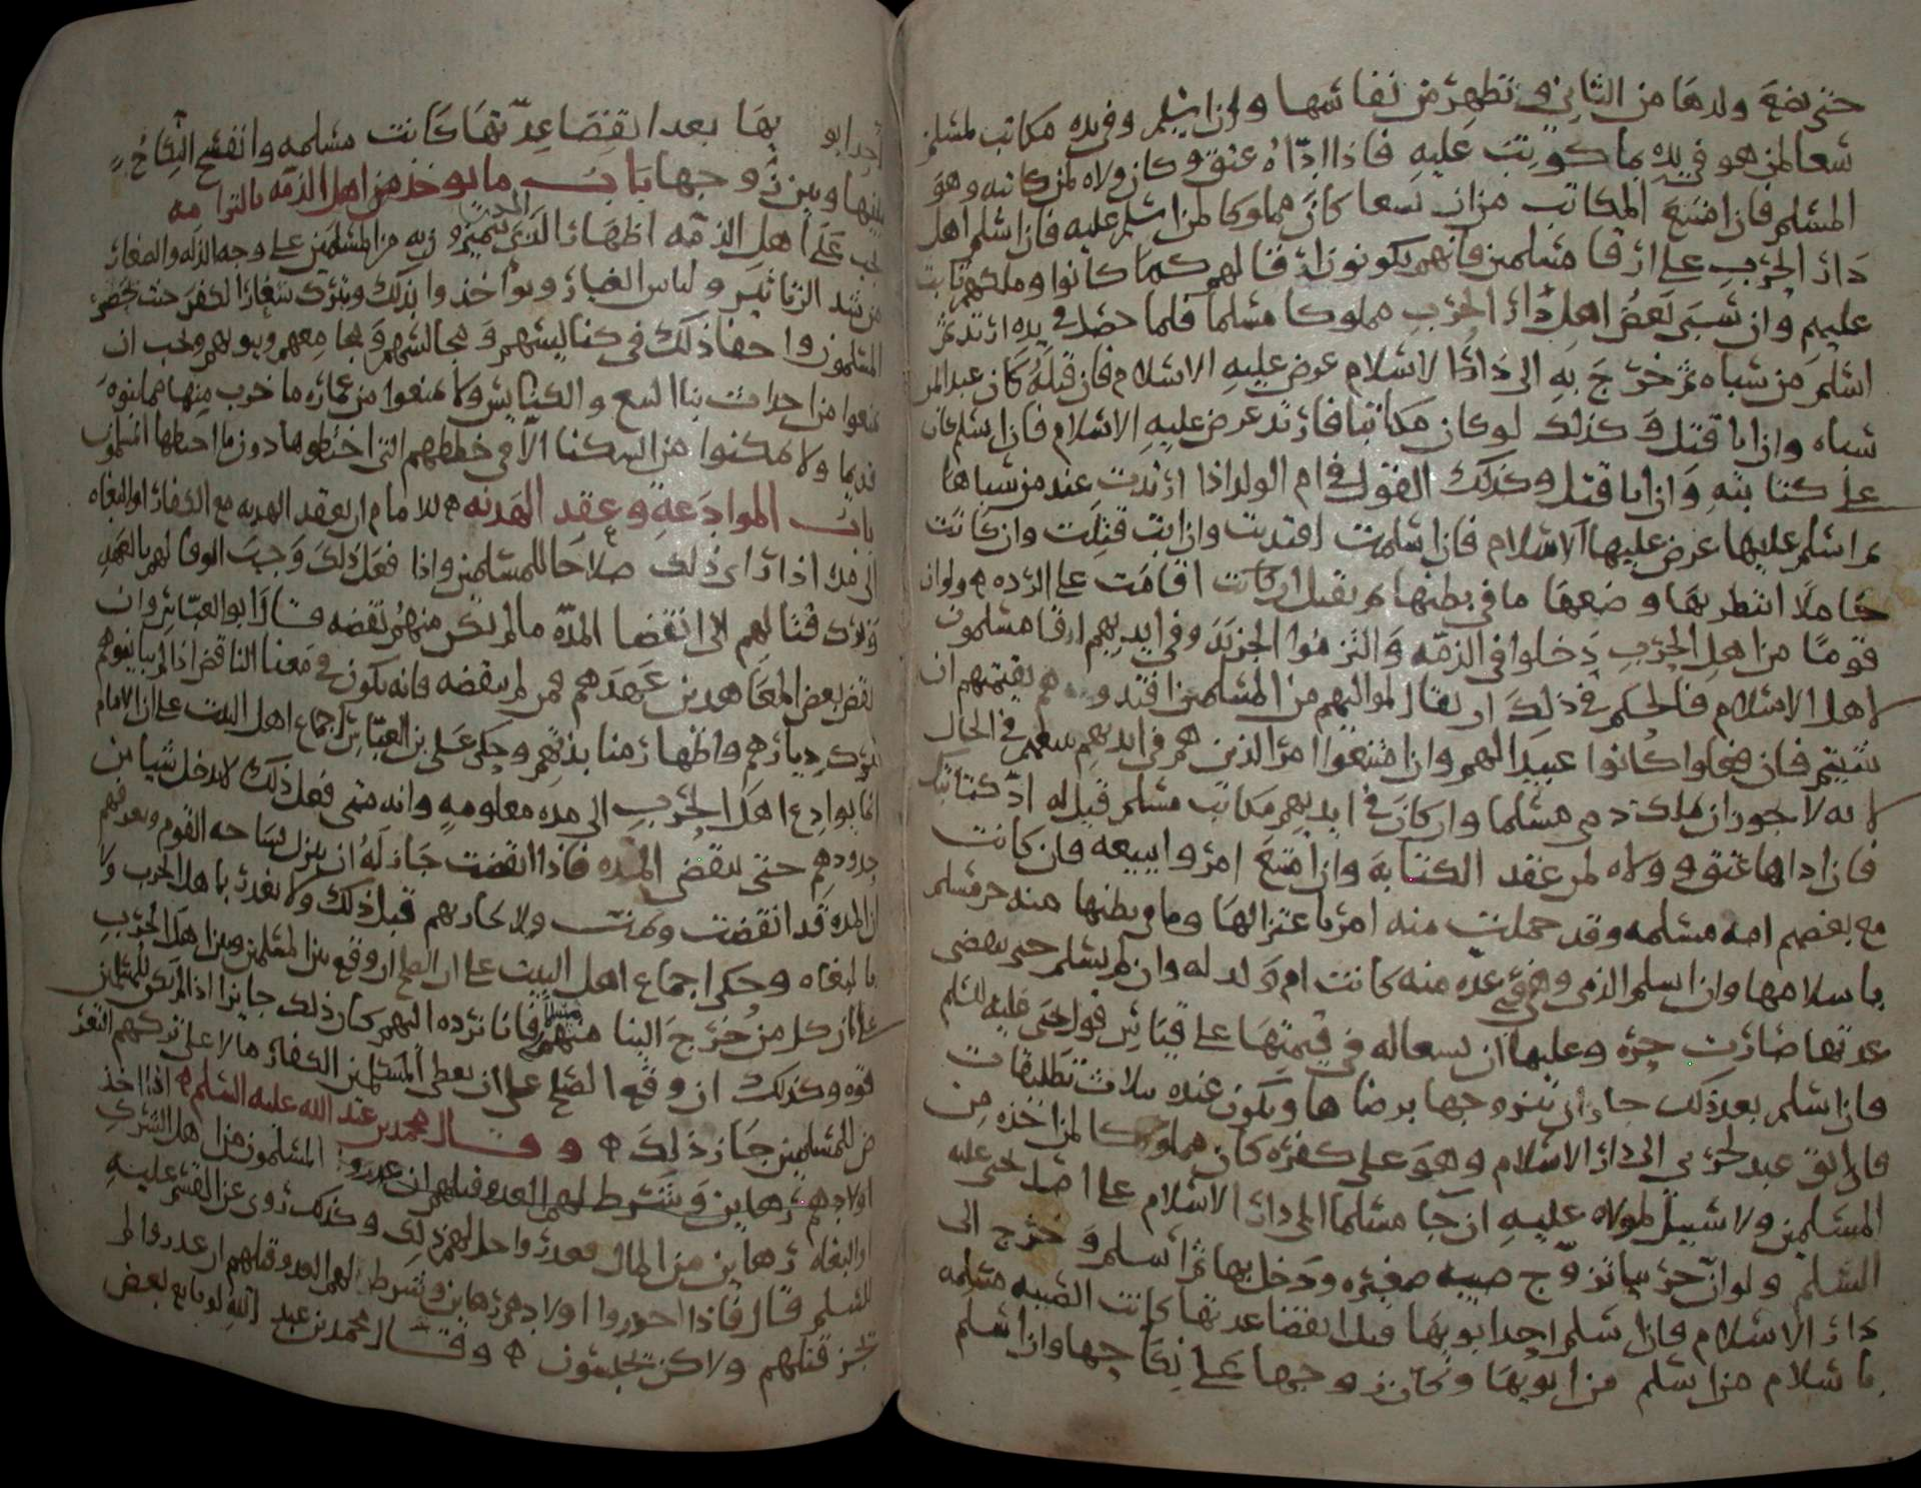 حتى تضع ولدها من الثاني وتطهر من نفاسها وإن اسلم وفي يده مكاتب لمسلم
سعا لمن هو في يده بما كوتبت عليه فاذا ادّاه عتق وكان ولاه لمن كاتبه وهو
المسلم فان امتنع المكاتب من ان يسعا كان مملوكا لمن اسلم عليه فان اسلم اهل
دار الحرب على ارقا مسلمين فانهم يكونون ارقا لهم كما كانوا وملكهم ثابت
عليهم وان سبى بعض اهل دار الحرب مملوكا مسلما فلما حصل في يده ارتد ثم
اسلم من سباه ثم خرج به الى دار الاسلام عرض عليه الاسلام فان قبله كان عبدا لمن
سباه وان ابا قتل وكذلك لو كان مكاتبا فارتد عرض عليه الاسلام فان اسلم كان
على كتابته وان ابا قتل وكذلك القول في ام الولد اذا ارتدت عند من سباها
ثم اسلم عليها عرض عليها الاسلام فان اسلمت افتديت وان ابت قتلت وان كانت
حاملا انتظر بها وضعها ما في بطنها ثم تقتل ان كانت اقامت على الرده ولو ان
قوما من اهل الحرب دخلوا في الذمّه والتزموا الجزيه وفي ايديهم ارقا مسلمون
لاهل الاسلام فالحكم في ذلك ان يقال لمواليهم من المسلمين افتدوهم بقيمتهم ان
شيتم فان فعلوا كانوا عبيدا لهم وان امتنعوا امر الذين هم في ايديهم ببيعهم في الحال
لانه لا يجوز ان يملك ذمي مسلما وان كان في ايديهم مكاتب مسلم قيل له ادّ كتابتك
فان اداها عتق وولاه لمن عقد الكتابة وان امتنع امروا ببيعه فان كانت
مع بعضهم امه مسلمه وقد حملت منه امر باعتزالها وما في بطنها منه حر مسلم
باسلامها وان اسلم الذمي وهي في عدّه منه كانت ام ولد له وان لم يسلم حتى تقضى
عدتها صارت حرّه وعليها ان تسعا له في قيمتها على قياس قول يحيى عليه السلم
فان اسلم بعد ذلك جاز ان يتزوجها برضاها وتكون عنده بثلاث تطليقات
فان ابق عبد لحربي الى دار الاسلام وهو على كفره كان مملوكا لمن اخذه من
المسلمين ولا سبيل لمولاه عليه ان جا مسلما الى دار الاسلام على اصل يحيى عليه
السلم ولو ان حربيا تزوّج صبيه صغيره ودخل بها ثم اسلم وخرج الى
دار الاسلام فان اسلم احد ابويها قبل انقضا عدتها كانت الصبيه مسلمه
باسلام من اسلم من ابويها وكان زوجها على نكاحها وان اسلم
احد ابويها بعد انقضا عدّتها كانت مسلمه وانفسخ النكاح
بينها وبين زوجها باب ما يوخذ من اهل الذمّه بالتزامه
يجب على اهل الذمّه اظهار الذى يتميزون به من المسلمين على وجه الذله والصغار
من شد الزنانير ولباس الغيار ويؤاخذوا بذلك وبترك شعار الكفر حيث يحضر
المسلمون واخفا ذلك في كنايسهم ومجالسهم ومجامعهم وبيوتهم ويجب ان
يمنعوا من احداث بنا البيع والكنايس ولا يمنعوا من عماره ما خرب منها مما بنوه
قديما ولا يمكنوا من السكنا الّا في خططهم التي اختطوها دون ما احتطها المسلمون
باب الموادعة وعقد الهدنه للامام ان يعقد الهدنه مع الكفار او البغاه
الى مده اذا راى ذلك صلاحا للمسلمين واذا فعل ذلك وجب الوفا لهم بالعهد
وترك قتالهم الى انقضا المدّه ما لم يكن منهم نقضه قال ابو العباس وان
نقض بعض المعاهدين عهدهم فمن لم ينقضه فانه يكون في معنا الناقض اذا لم يباينوهم
بترك ديارهم واظهار منابذتهم وحكى على بن العبّاس اجماع اهل البيت على ان الامام
انما يوادع اهل الحرب الى مده معلومه وانه متى فعل ذلك لا يدخل شيا من
حدودهم حتى تنقضي المده فاذا انقضت جاز له ان ينزل بساحه القوم ويعرفهم
ان المده قد انقضت وتمت ولا يحاربهم قبل ذلك ولا يغدر باهل الحرب ولا
بالبغاه وحكى اجماع اهل البيت على ان الصلح ان وقع بين المسلمين وبين اهل الحرب
على ان كل من خرج الينا منهم مسلما فانا نرده اليهم كان ذلك جايزا اذا لم يكن للمسلمين
قوه وكذلك ان وقع الصلح على ان يعطي المسلمين الكفار مالا على تركهم التعر
ض للمسلمين جاز ذلك وقال محمد بن عبد الله عليه السلم اذا اخذ
المسلمون من اهل الشرك
اولادهم رهاين وشرط لهم العدو قتلهم ان غدروا
او البغاه رهاين من المال فغدروا حل لهم ذلك وكذلك روى عن القسم عليه
السلم قال فاذا احدروا اولادهم رهاين وشرط لهم العدو قتلهم ان غدروا لم
يجز قتلهم ولاكن يحبسون وقال محمد بن عبد الله لو بايع بعض